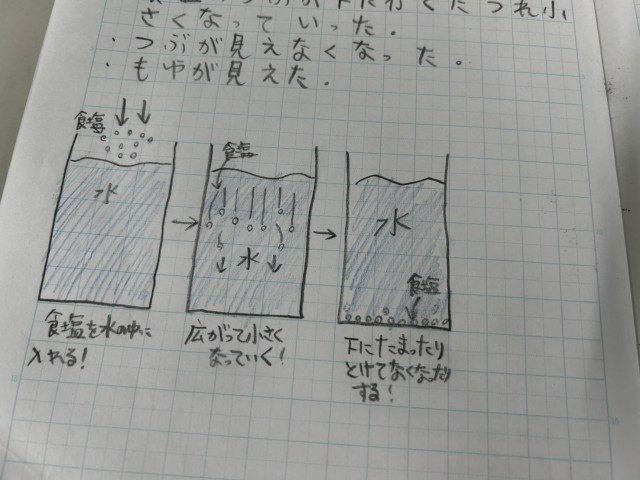 つぶが下に行くにつれ小
さくなっていった.
・つぶが見えなくなった。
・もやが見えた.
食塩
水
食塩を水の中に
入れる!
食塩
水
広がって小さく
なっていく!
水
食塩
下にたまったり
とけてなくなったり
する!